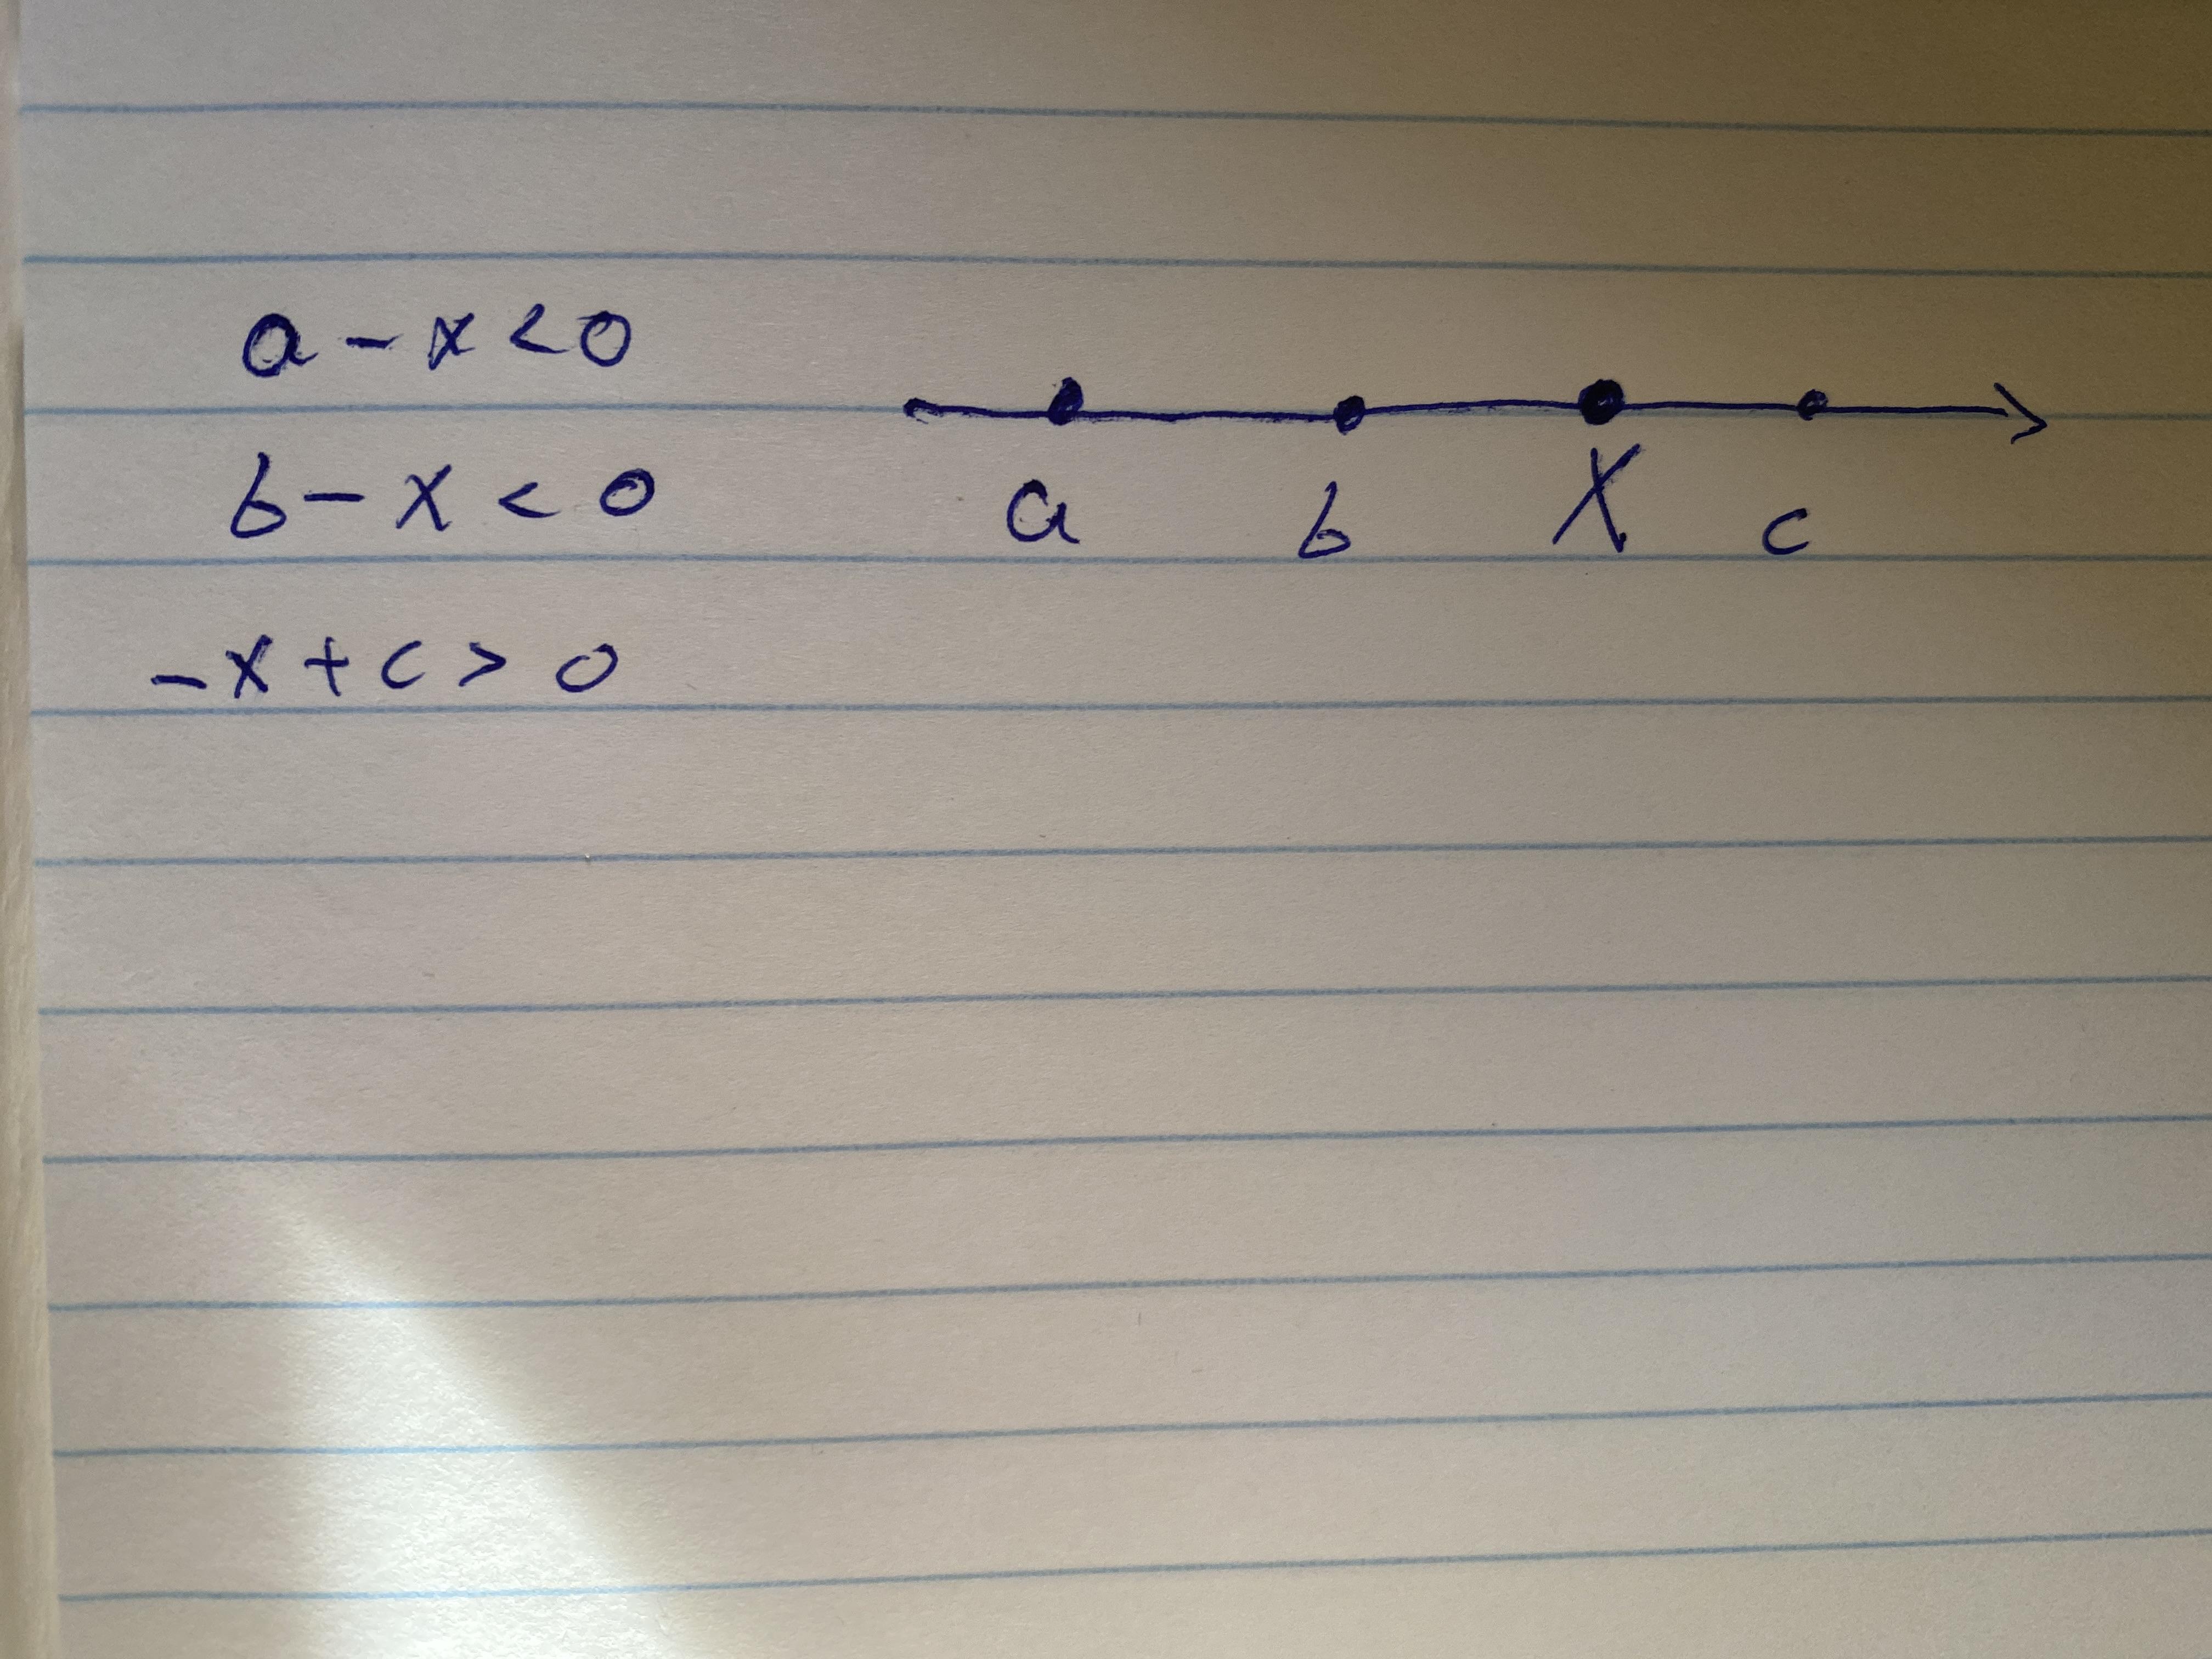 a - x < 0
b - x < 0
a b X c
-x + c > 0